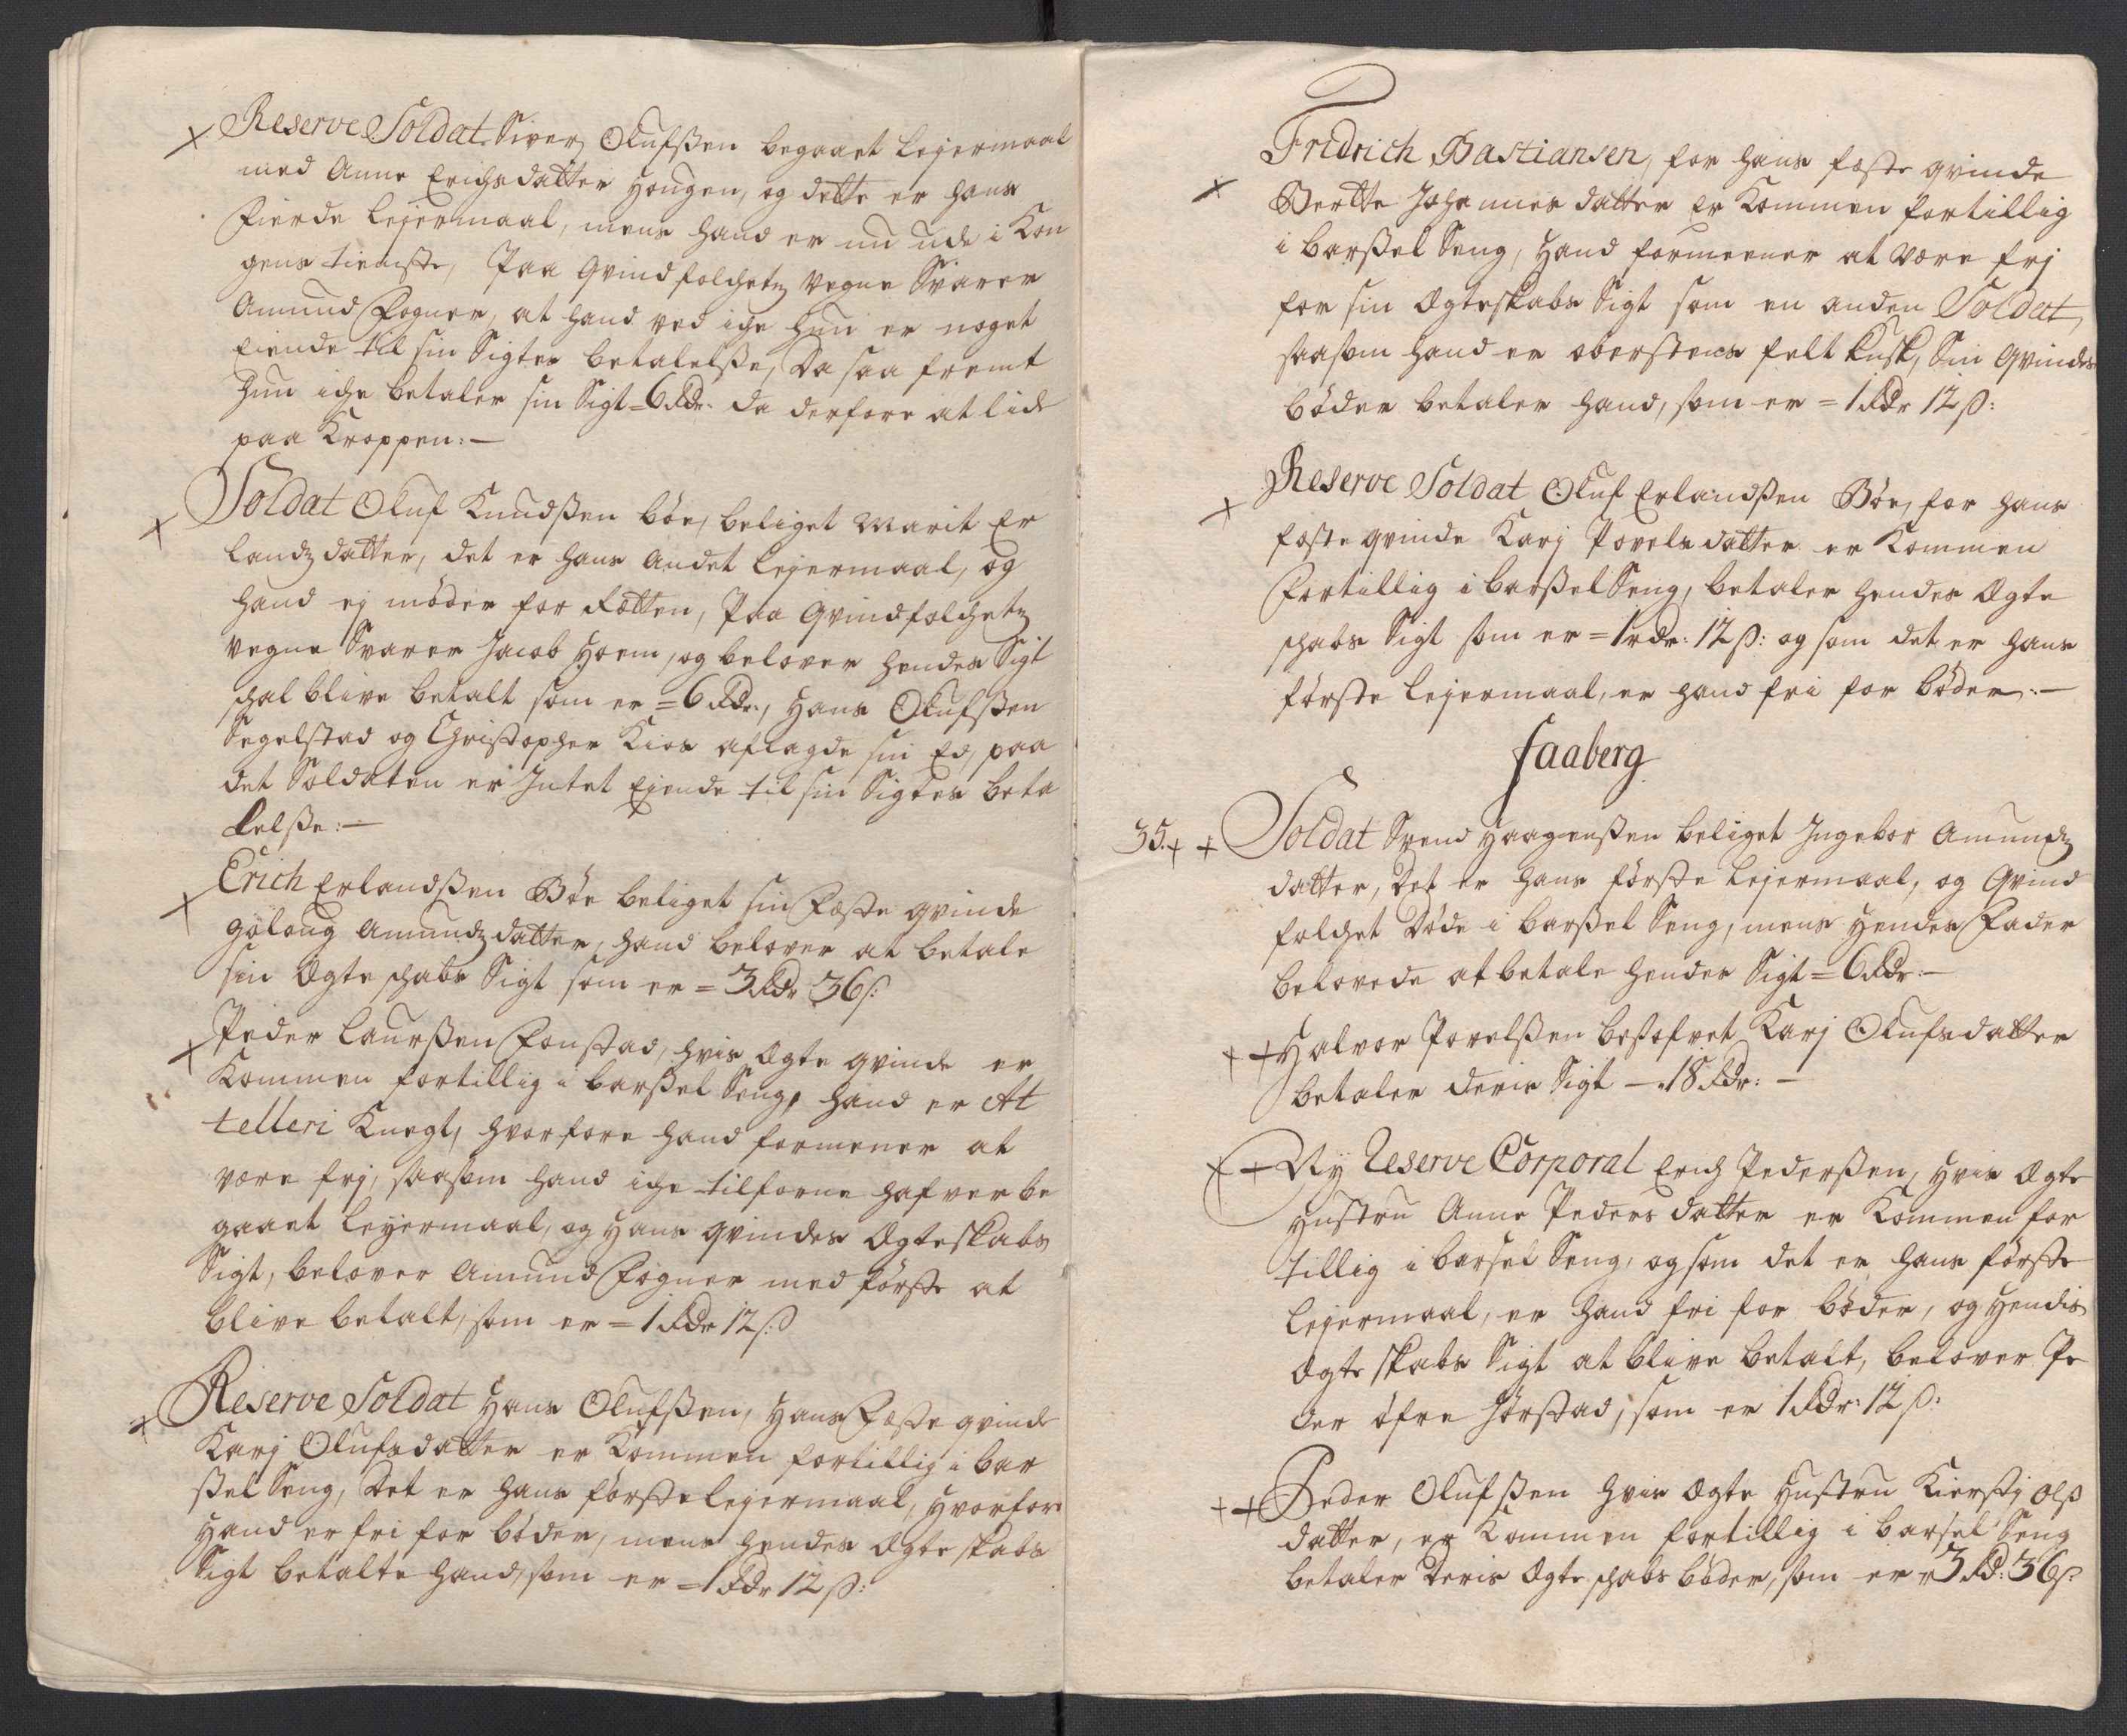 + Reserve Soldat Siver Olufßen begaaet Lejermaal
med Anne Erichsdatter Hougen, og dette er hans
Fierde Lejermaal, mens hand er nu ude i Kon
gens tieniste, Paa Qvindfolchetz Vegne Svarer
Amund Fogner, at hand ved iche hun er noget
Eiende til sin Sigtes betalelße, Da saa fremt
hun iche betaler sin Sigt = 6 Rdr: da derfore at lide
paa Kroppen: —
+ Soldat Oluf Knudßen böe, beliget Marit Er
landz datter, det er hans andet Lejermaal, og
hand ej möder for Rætten, Paa Qvindfolchetz
Vegne Svarer Jacob Hoem, og belover hendes Sigt
schal blive betalt som er = 6 Rdr:, Hans Olufßen
Segelstad og Christopher Kios aflagde sin Ed, paa
det Soldaten er Intet Ejende til sin Sigtes beta
lelße: —
+ Erich Erlandßen Böe beliget sin Fæste qvinde
Gölaug Amundz datter, hand belover at betale
sin Ægteschabs Sigt som er = 3 Rdr 36 ß:
+ Peder Laurßen Fonstad, hvis Ægte qvinde er
Kommen fortillig i barßel Seng, hand er At
telleri Knegt, hvorfore hand formener at
være frj, saasom hand iche tilforne hafver be
gaaet Leyermaal, og Hans qvindes Ægteskabs
Sigt, belover Amund Fogner med förste at
blive betalt, som er = 1 Rdr 12 ß:
+ Reserve Soldat Hans Olufßen, Hans Fæste qvinde
Karj Olufsdatter er Kommen fortillig i bar
ßel Seng, Det er hans förste Lejermaal, Hvorfore
Hand er fri for böder, mens hendes Ægteskabs
Sigt betalte hand, som er = 1 Rdr 12 ß:
Fridrich Bastiansen, for hans fæste qvinde
+ Berthe Johannes datter er Kommen fortillig
i barßel Seng, Hand formeener at være frj
for sin Ægteskabs Sigt som en anden Soldat,
saasom hand er oberstens felt Kusk, Sin Qvindes
böder betaler hand, som er = 1 Rdr 12 ß:
+ Reserve Soldat Oluf Erlandßen Böe, for hans
fæste qvinde Karj Povels datter er Kommen
Fortillig i barßel Seng, betaler hendes Ægte
schabs Sigt som er = 1 rdr: 12 ß: og som det er hans
förste Lejermaal, er hand fri for böder: —
faaberg
35. + + Soldat Svend Haagenßen beliget Ingebor Amundz
datter, Det er hans förste Lejermaal, og Qvind
folchet Döde i barßel Seng, mens Hendes Fader
belovede at betale hendes Sigt = 6 Rdr: —
+ + Halvor Povelßen besofvet Karj Olufsdatter
betaler deris Sigt — 18 Rdr: —
+ + Ny Reserve Corporal Erich Pederßen, Hvis Ægte
Hustru Anne Peders datter er Kommen for
tillig i barsel Seng, og som det er hans förste
Lejermaal, er hand fri for böder, og Hendis
Ægteskabs Sigt at blive betalt, belover Pe
der öfre Jörstad, som er 1 Rdr: 12 ß:
+ + Peder Olufßen hvis Ægte Hustru Kierstj Olß
datter, er Kommen fortillig i barsel Seng
betaler Deris Ægteschabs böder, som er = 3 Rd: 36 ß: